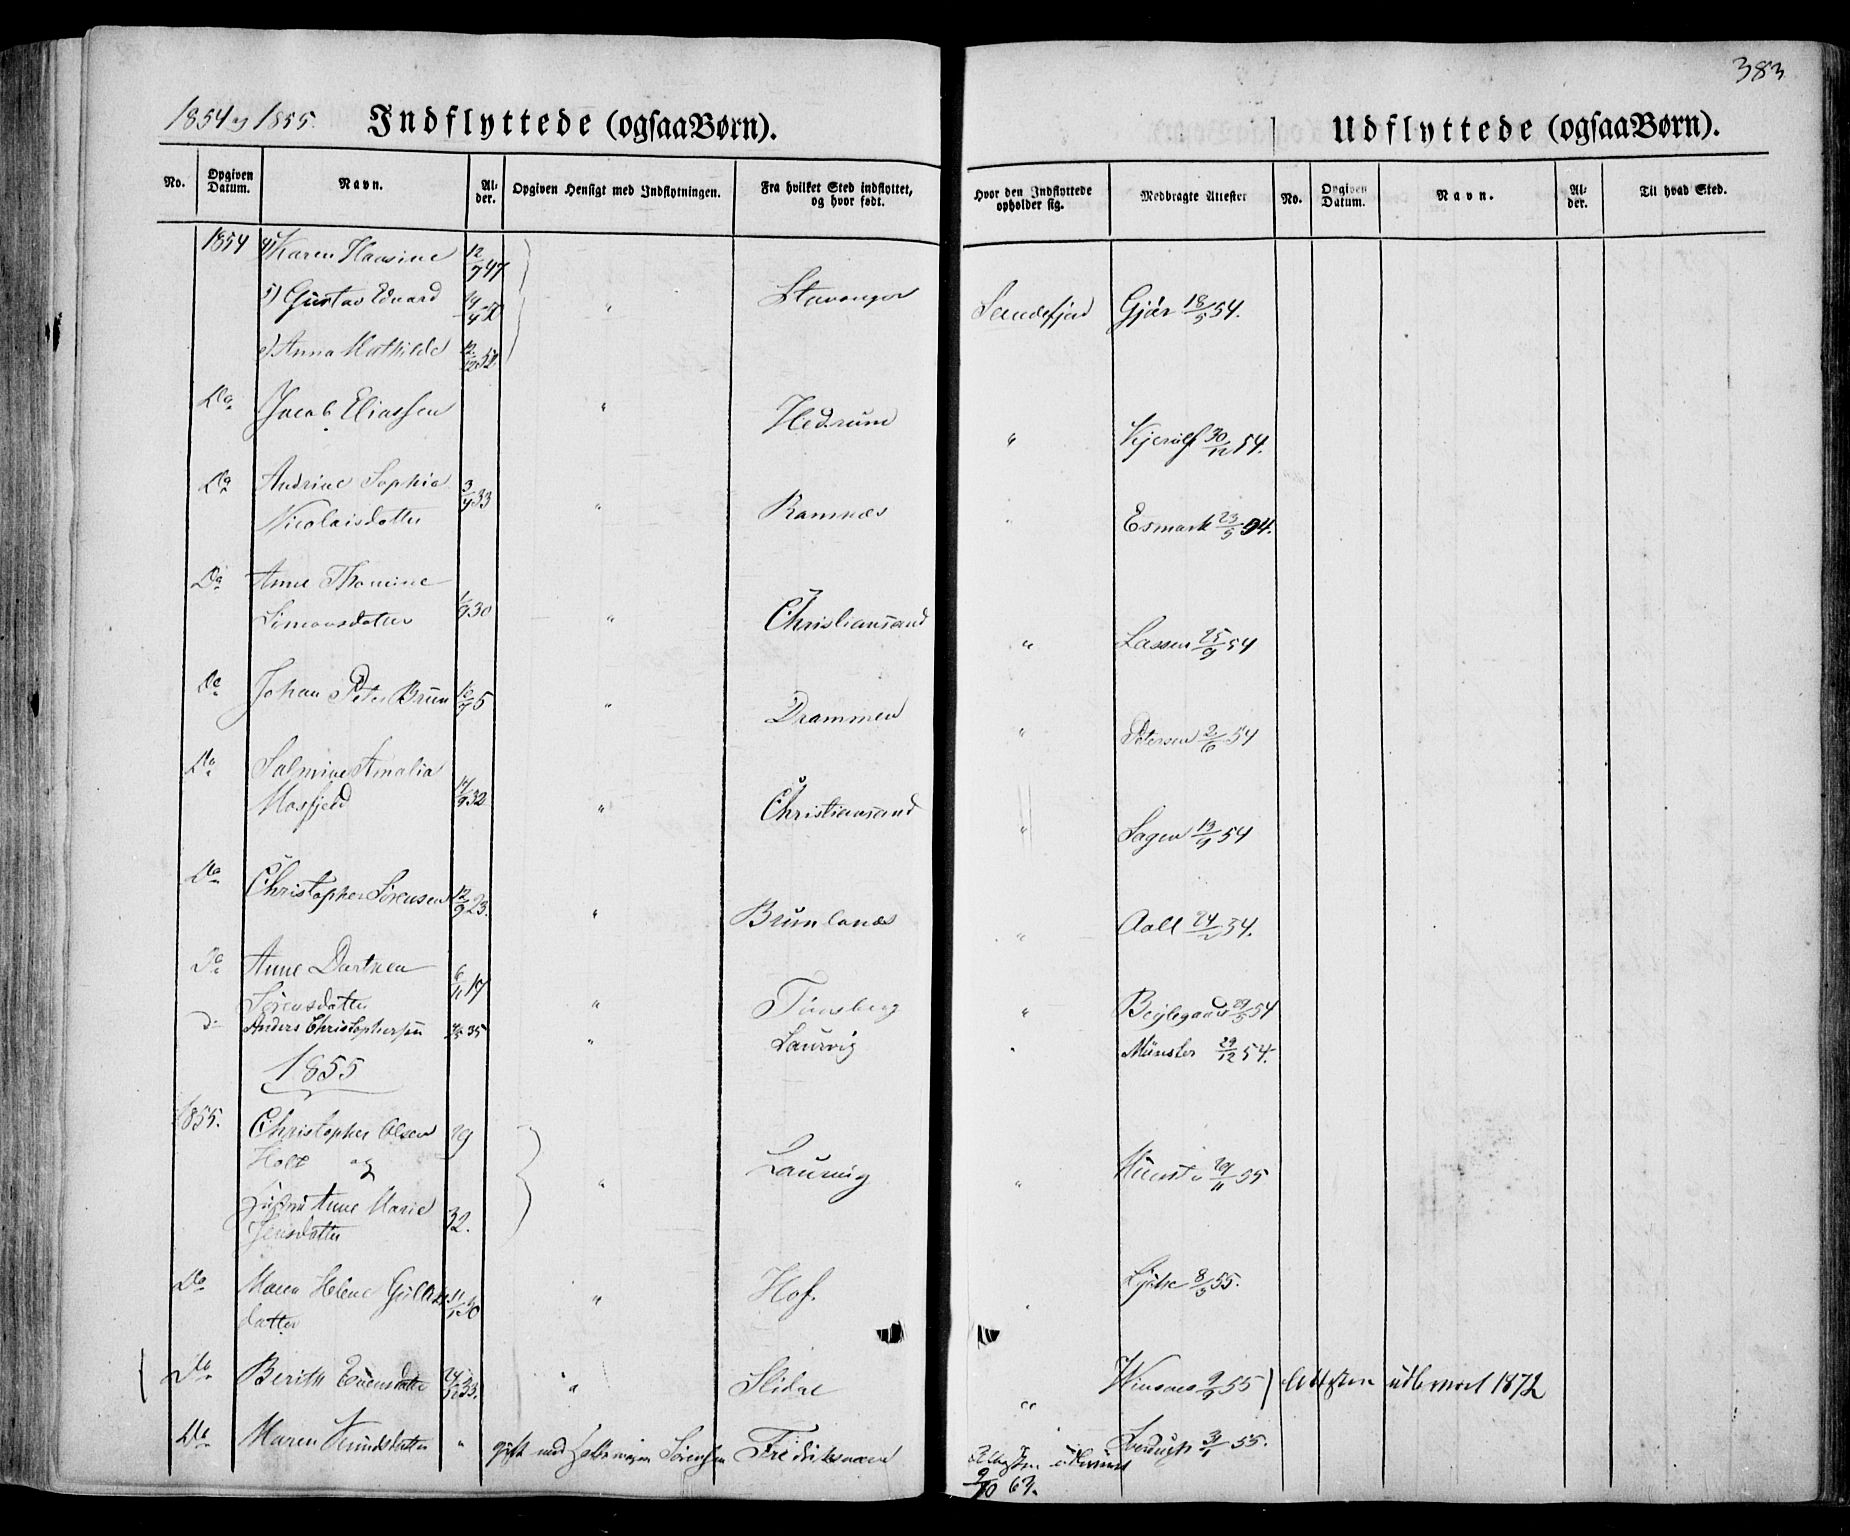 383
1854 og 1855. Indflyttede (ogsaa Børn).
Udflyttede (ogsaa Børn).
No. Opgiven Datum. Navn. Al-der. Opgiven Hensigt med Indflytningen. Fra hvilket Sted indflyttet, og hvor født. Hvor den Indflyttede opholder sig. Medbragte Attester No. Opgiven Datum. Navn. Al-der. Til hvad Sted.
1854 4) Karen Hansine 12/7 47
5) Gustav Edvard 14/4 " Stavanger Sandefjord Gjör 18/5 54.
Anna Mathilde 12/12 52
Do Jacob Eliassen " Hedrum " Kjerulf 30/12 54.
Do Andrine Sophia 3/4 33
Nicolaisdatter " Ramnæs " Esmark 23/5 54.
Do Anne Thomine
Simonsdatter 1/9 30 " Christiansand " Lassen 25/9 54
Do Johan Peter Brun 12/7 5 " Drammen " Petersen 2/6 54
Do Salmine Amalia
Mosfjeld 14/9 32 " Christiansand " Sagen 13/9 54
Do Christopher Sörensen 12/9 23. " Brunlanæs " Aall 24/2 54.
Do Anne Dorthea 6/11 17
Sörensdatter " Tönsberg " Beylegaard 29/5 54
Do Anders Christophersen 35 " Laurvig " Münster 29/12 54.
1855
1855. Christopher Olsen 29
Holt og " Laurvig " Münster 29/11 55
Hustru Anne Marie 32.
Jensdatter
Do Maren Helene
datter " Hof. " 8/5 55.
Do Berith 33. " Slidre " Winsnes 9/9 55 Attesten udleveret 1872
Do Maren Knudsdatter " gift med Sörensen Fredriksværn 3/1 55.
Attesten udleveret
9/10 67.